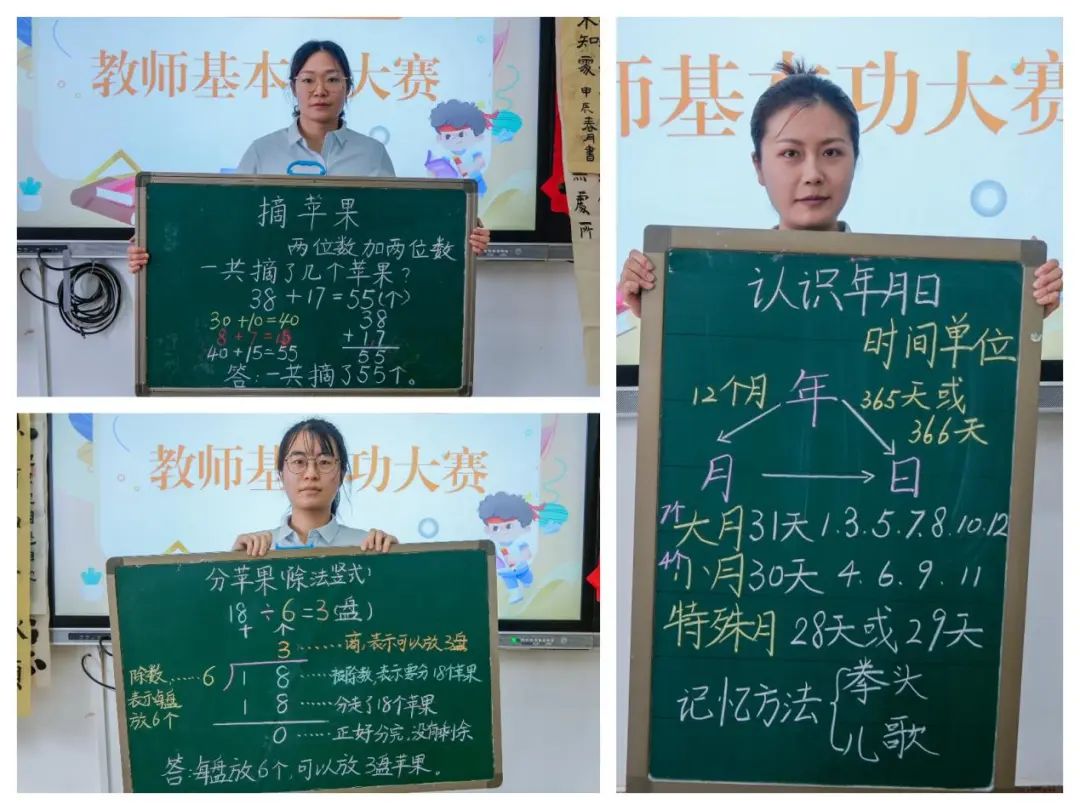 教师基本大赛
木知霰
甲辰春月書
處所
摘苹果
两位数加两位数
一共摘了几个苹果?
38+17=55(个)
30+10=40
8+7=15
40+15=55
38
+17
55
答:一共摘了55个。
教师基功大赛
分苹果(除法竖式)
18÷6=3(盘)
十 个
3……商,表示可以放3盘
除数,……6
表示每盘
放6个
18……被除数,表示要分18个苹果
18……分走了18个苹果
0……正好分完,没有剩余
答:每盘放6个,可以放3盘苹果。
师基本功大赛
认识年月日
时间单位
12个月
年
365天或
366天
月
日
7个大月31天 1.3.5.7.8.10.12
4个小月30天 4.6.9.11
特殊月 28天或29天
记忆方法{拳头
儿歌